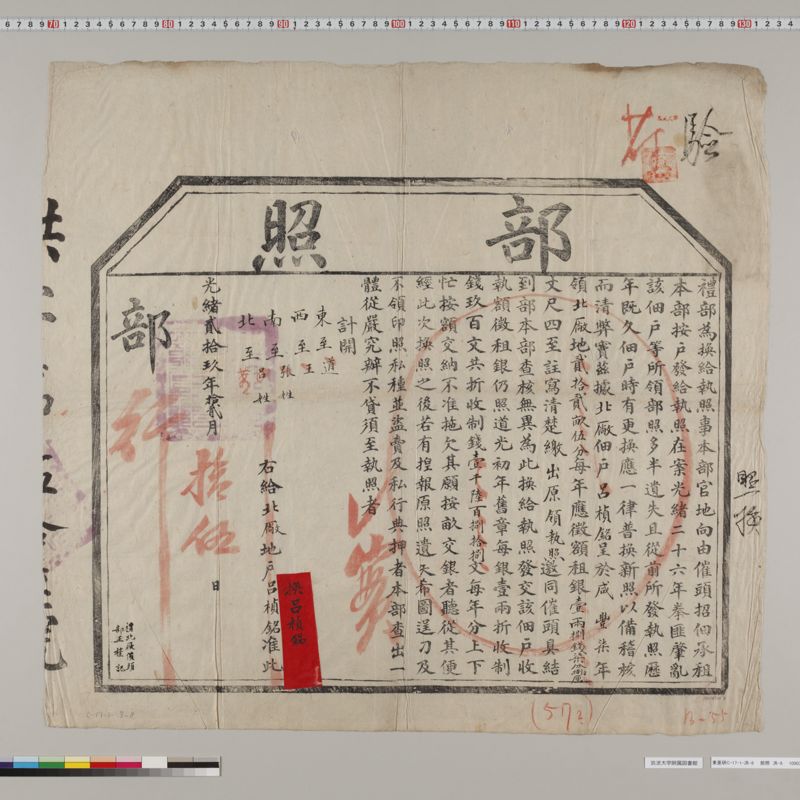 驗
部照
禮部為換給執照事本部官地向由催頭招佃承租
本部按戶發給執照在案光緒二十六年拳匪肇亂
該佃戶等所領部照多半遺失且從前所發執照歷
年既久佃戶時有更換應一律普換新照以備稽核
而清弊竇茲據北厰佃戶呂楨銘呈於咸豐柒年
領北厰地貳拾貳畝伍分每年應徵額租銀壹兩捌錢
丈尺四至註寫清楚繳出原領執照邀同催頭具結
到部本部查核無異為此換給執照發交該佃戶收
執額徵租銀仍照道光初年舊章每銀壹兩折收制
錢玖百文共折收制錢壹千陸百捌拾捌文每年分上下
忙按額交納不准拖欠其願按畝交銀者聽從其便
經此次換照之後若有揑報原照遺失希圖逞刀及
不領印照私種並盜賣及私行典押者本部查出一
體從嚴究辦不貸須至執照者
計開
東至道
西至王
南至張姓
北至呂姓
右給北厰地戶呂楨銘准此
光緒貳拾玖年拾貳月
拾伍
日
部
換呂楨銘
照換
(572)
B-55
筑波大学附属図書館